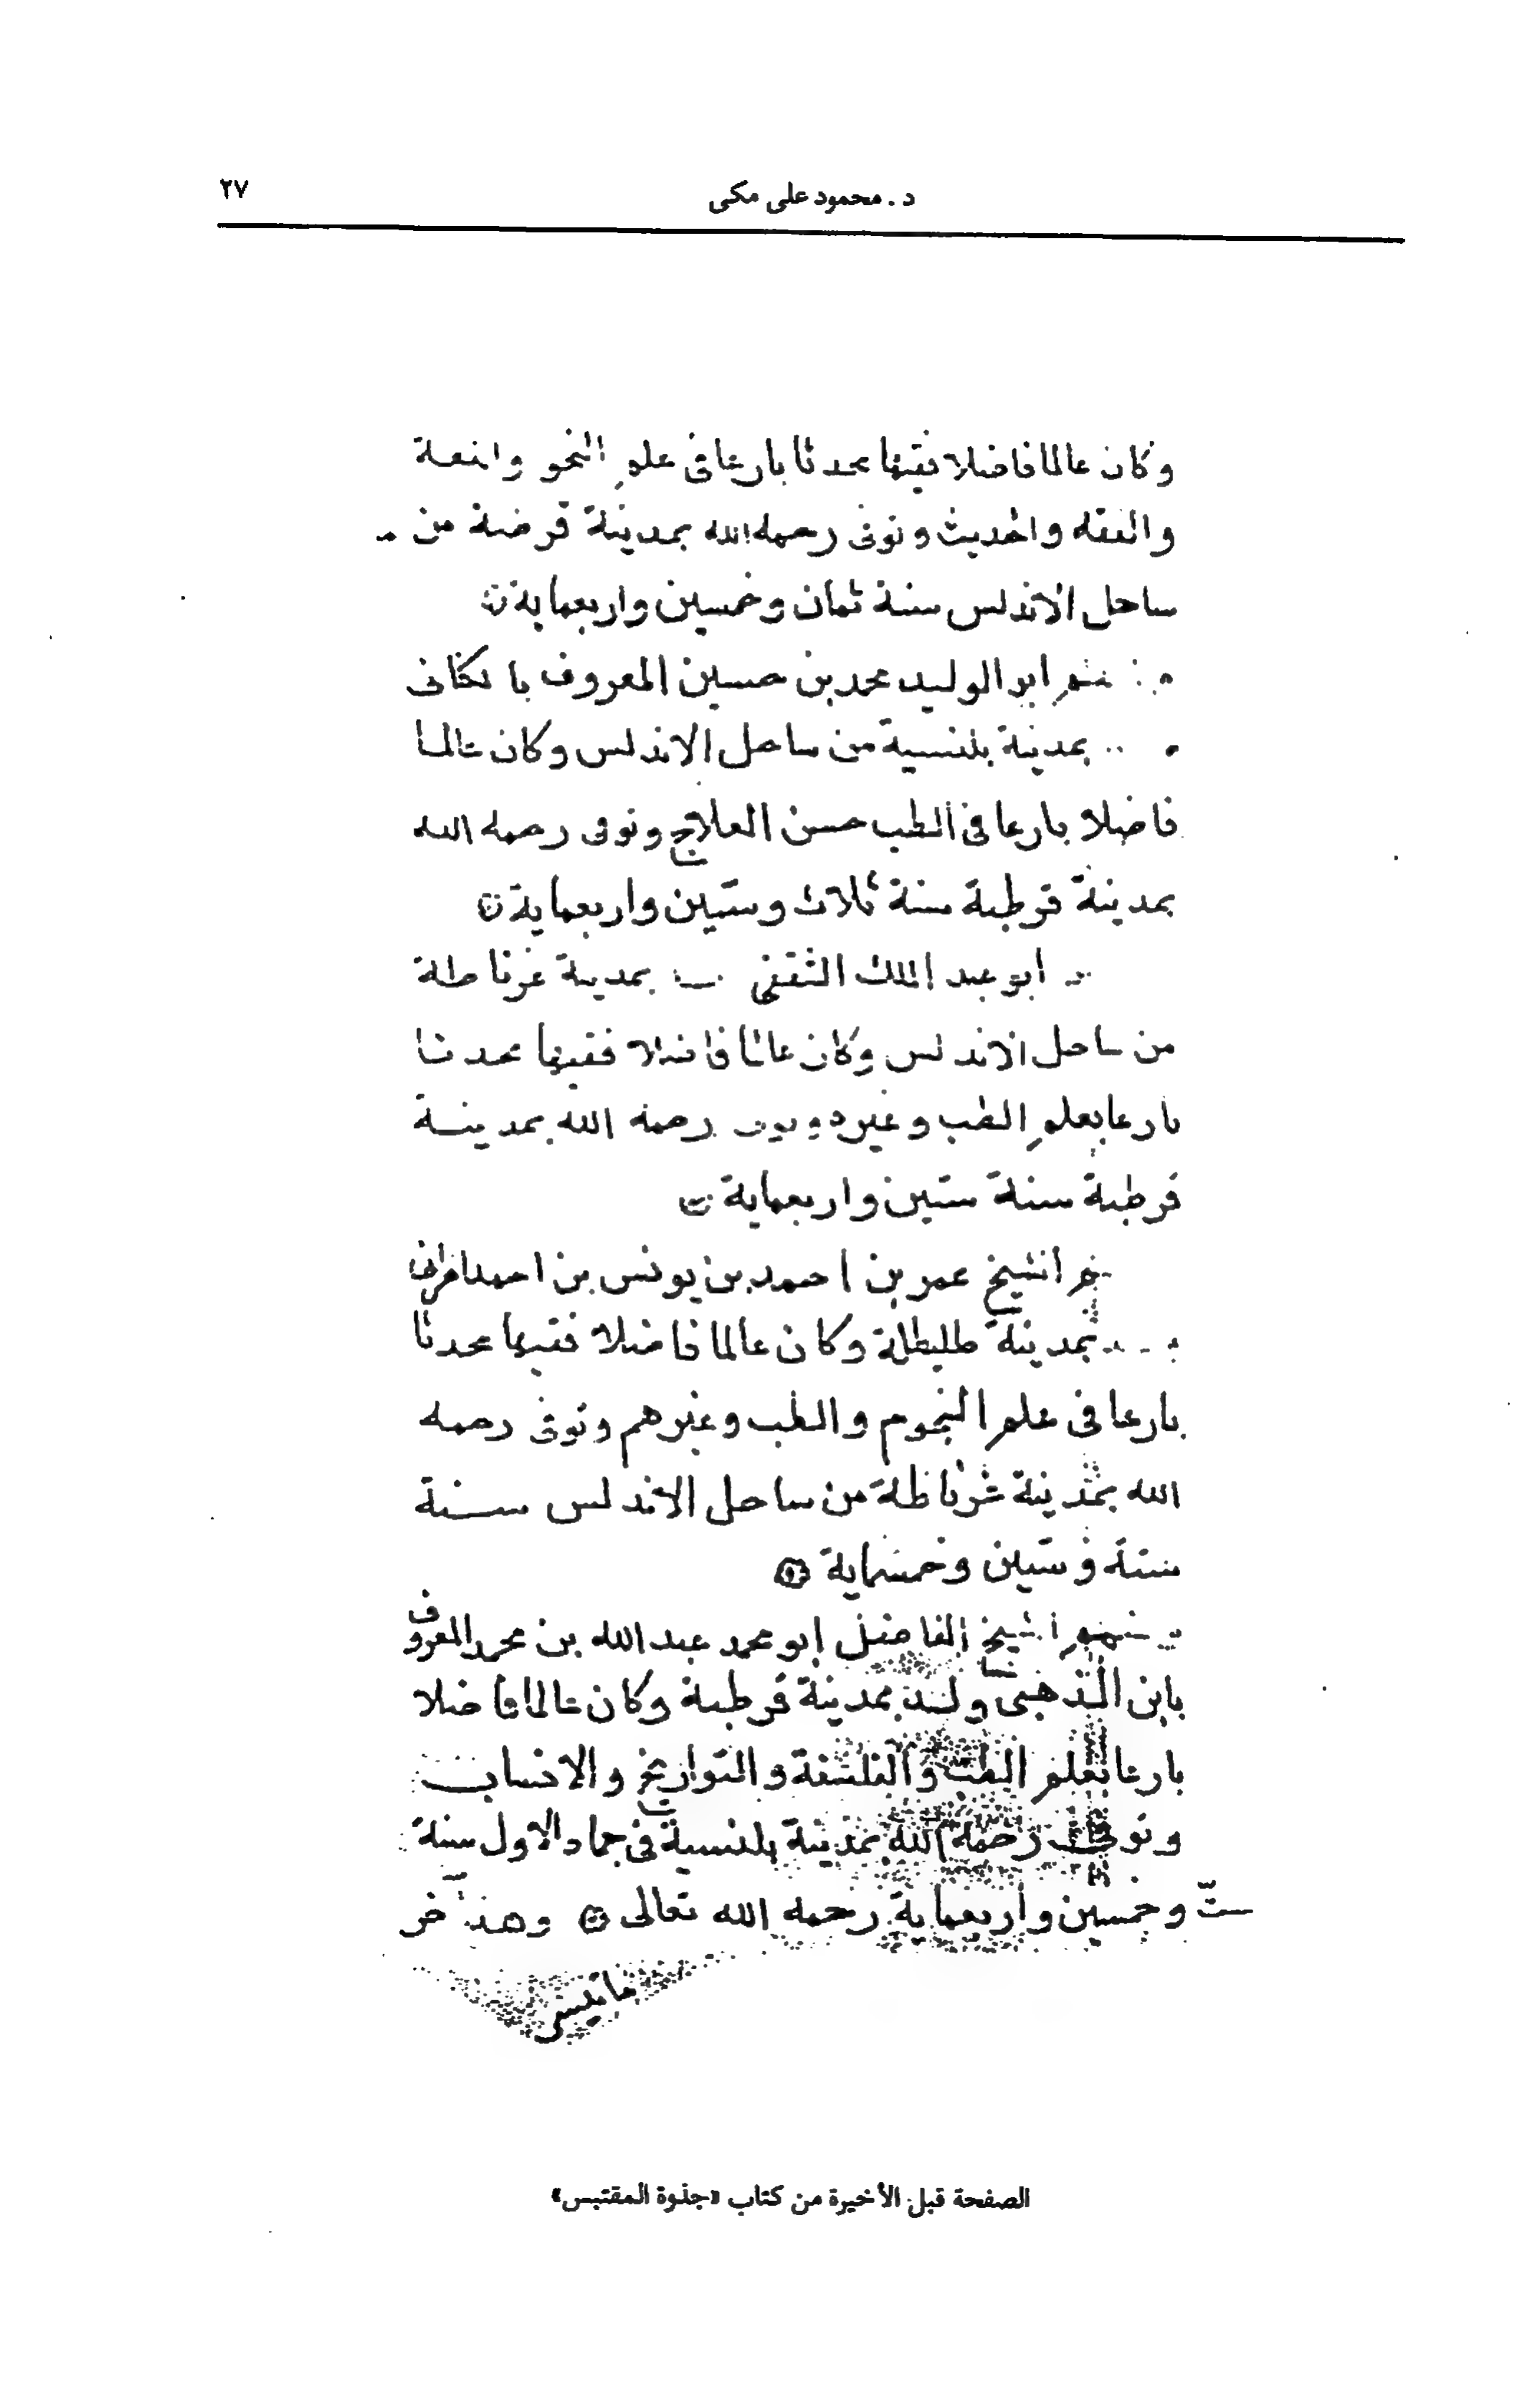 د . محمود على مكى
٢٧
وكان عالما فاضلا فقيها محدثا بارعا فى علم النحو واللغة
والفقه والحديث وتوفى رحمه الله بمدينة قرطبة من
ساحل الاندلس سنة ثمان وخمسين واربعماية
ومنهم ابو الوليد محمد بن حسين المعروف بالكتانى
بمدينة بلنسية من ساحل الاندلس وكان عالما
فاضلا بارعا فى الطب حسن العلاج وتوفى رحمه الله
بمدينة قرطبة سنة ثلاث وستين واربعماية
ابو عبد الملك الثقفى بمدينة غرناطة
من ساحل الاندلس وكان عالما فاضلا فقيها محدثا
بارعا بعلم الطب وغيره وتوفى رحمه الله بمدينة
قرطبة سنة ستين واربعماية
الشيخ عمر بن احمد بن يونس بن احمد الحرانى
بمدينة طليطلة وكان عالما فاضلا فقيها محدثا
بارعا فى علم النجوم والطب وغيرهم وتوفى رحمه
الله بمدينة غرناطة من ساحل الاندلس سنة
ستة وستين وخمسماية
ومنهم الشيخ الفاضل ابو محمد عبد الله بن محمد المعروف
بابن الذهبى ولد بمدينة قرطبة وكان عالما فاضلا
بارعا بعلم الطب والفلسفة والتواريخ والانساب
وتوفى رحمه الله بمدينة بلنسية فى جماد الاول سنة
ستّ وخمسين واربعماية رحمه الله تعالى وهذا آخر
ما تيسر
الصفحة قبل الأخيرة من كتاب «جذوة المقتبس»